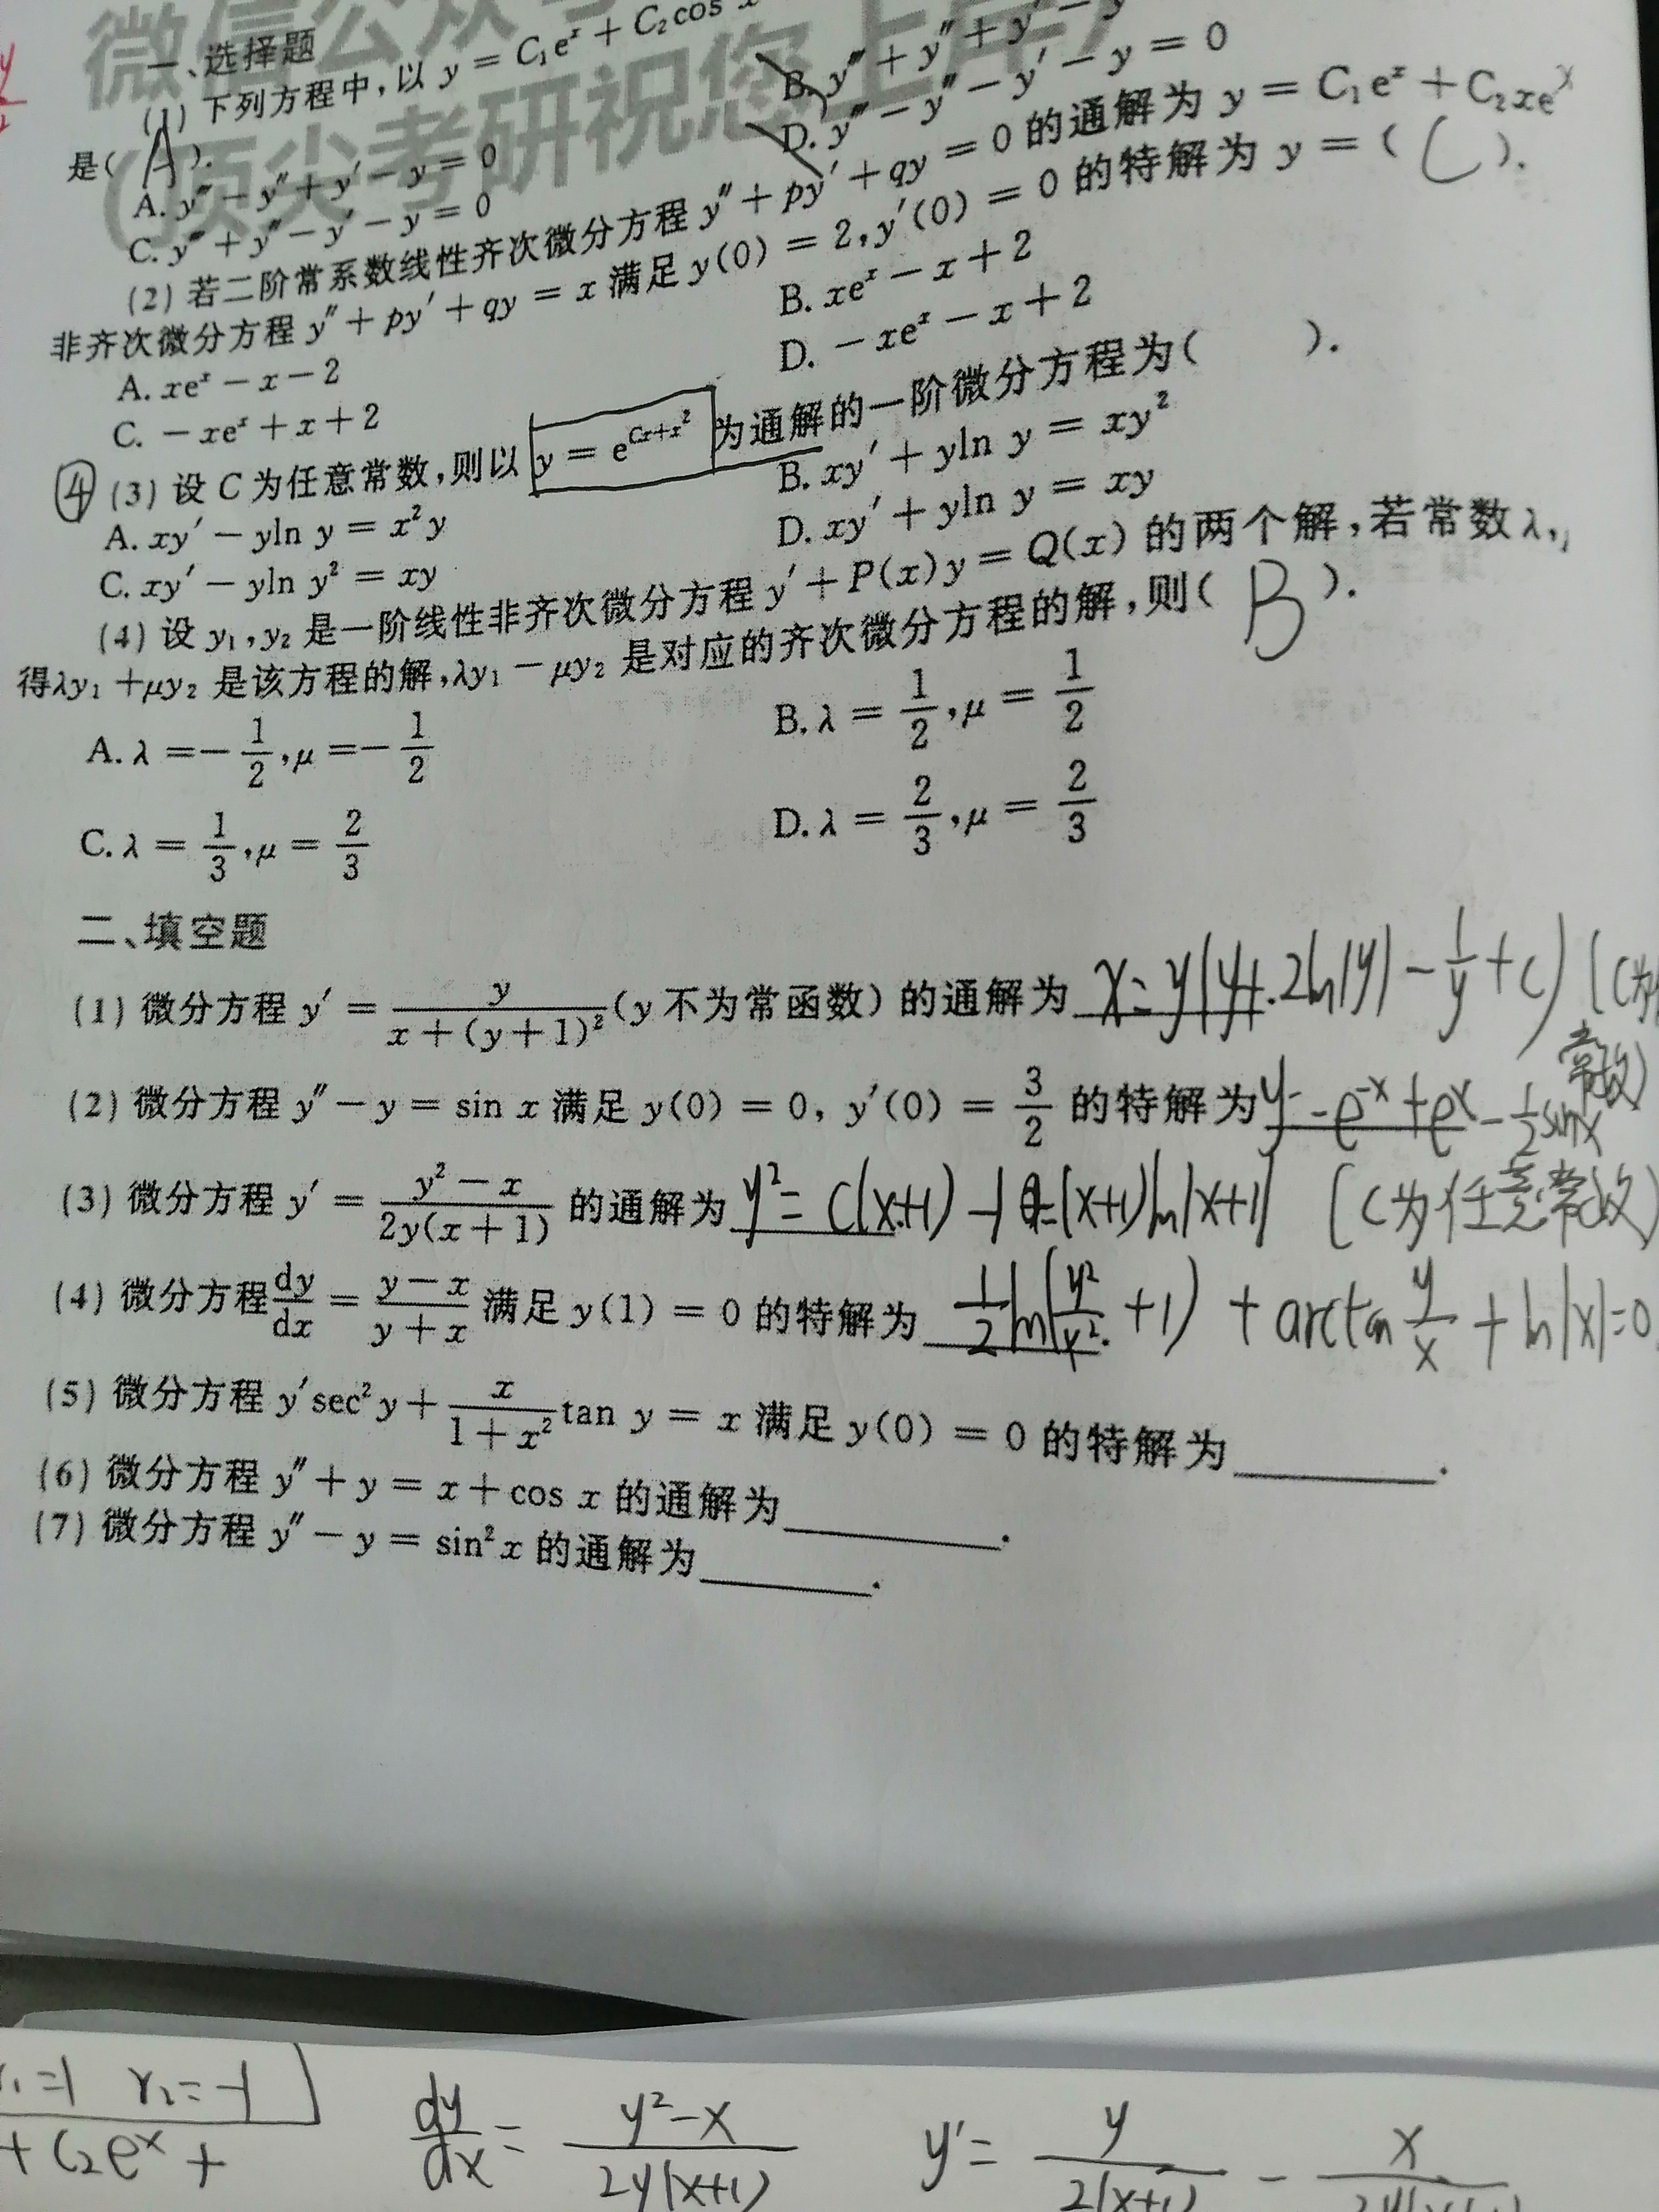 微信公众号
(顶尖考研祝您上岸)
一、选择题
(1) 下列方程中,以 y = C₁eˣ + C₂cos x
是( A ).
A. y‴ − y″ + y′ − y = 0
B. y‴ + y″ + y′ − y
C. y‴ + y″ − y′ − y = 0
D. y‴ − y″ − y′ − y = 0
(2) 若二阶常系数线性齐次微分方程 y″ + py′ + qy = 0 的通解为 y = C₁eˣ + C₂xeˣ
非齐次微分方程 y″ + py′ + qy = x 满足 y(0) = 2, y′(0) = 0 的特解为 y = ( C ).
A. xeˣ − x − 2
B. xeˣ − x + 2
C. −xeˣ + x + 2
D. −xeˣ − x + 2
④ (3) 设 C 为任意常数,则以 y = e^(Cx+x²) 为通解的一阶微分方程为( ).
A. xy′ − yln y = x²y
B. xy′ + yln y = xy²
C. xy′ − yln y² = xy
D. xy′ + yln y = xy
(4) 设 y₁,y₂ 是一阶线性非齐次微分方程 y′ + P(x)y = Q(x) 的两个解,若常数 λ,
得λy₁ + μy₂ 是该方程的解,λy₁ − μy₂ 是对应的齐次微分方程的解,则( B ).
A. λ = −1/2, μ = −1/2
B. λ = 1/2, μ = 1/2
C. λ = 1/3, μ = 2/3
D. λ = 2/3, μ = 2/3
二、填空题
(1) 微分方程 y′ = y/(x + (y + 1)²) (y 不为常函数) 的通解为 x = y(y + 2ln|y| − 1/y + C) (C为
常数)
(2) 微分方程 y″ − y = sin x 满足 y(0) = 0, y′(0) = 3/2 的特解为 y = −e⁻ˣ + eˣ − 1/2 sinx
(3) 微分方程 y′ = (y² − x)/(2y(x + 1)) 的通解为 y² = C(x+1) − 1 − (x+1)ln|x+1| (C为任意常数)
(4) 微分方程 dy/dx = (y − x)/(y + x) 满足 y(1) = 0 的特解为 1/2 ln(y²/x² + 1) + arctan y/x + ln|x| = 0
(5) 微分方程 y′sec²y + x/(1 + x²) tan y = x 满足 y(0) = 0 的特解为________.
(6) 微分方程 y″ + y = x + cos x 的通解为________.
(7) 微分方程 y″ − y = sin²x 的通解为________.
r₁ = 1 r₂ = −1
+ C₂eˣ +
dy/dx = (y² − x)/(2y(x+1))
y′ = y/(2(x+1)) − x/(2y(x+1))